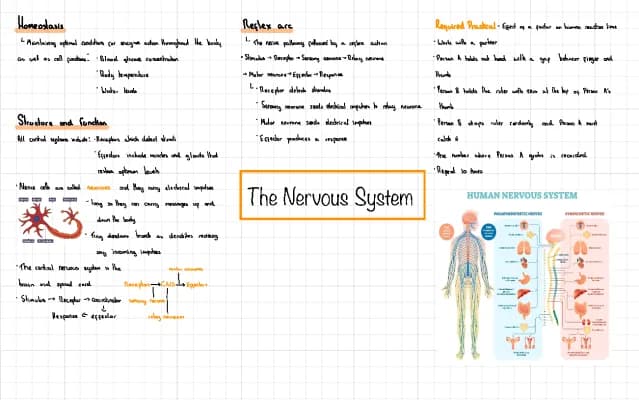 Homeostasis
Maintaining optimal conditions for enzyme action throughout the body
as well as cell functions. · Blood glucose concentration
· Body temperature
· Water levels
Structure and function
All control systems include: · Receptors which detect stimuli
· Effectors include muscles and glands that
restore optimum levels
· Nerve cells are called neurones and they carry electrical impulses
· long so they can carry messages up and
down the body
· Tiny dendrites branch as dendrites
any incoming impulses
· The central nervous system is the
brain and spinal cord
Receptor → CNS → Effector
sensory neurone
relay neurone
· Stimulus → Receptor → Coordinator
Response ← effector
Reflex arc
The nerve pathway followed by a reflex action
· Stimulus → Receptor → Sensory neurone → Relay neurone
→ Motor neurone → Effector → Response
· Receptor detects stimulus
· Sensory neurone sends electrical impulses to relay neurone
· Motor neurone sends electrical impulses
· Effector produces a response
The Nervous System
Required Practical - Effect of a factor on human reaction time
· Work with a partner
· Person A holds out hand with a gap between finger and
thumb
· Person B holds the ruler with zero at the top of Person A's
thumb
· Person B drops ruler randomly and Person A must
catch it
· The number above Person A's is recorded
· Repeat 10 times
HUMAN NERVOUS SYSTEM
PARASYMPATHETIC NERVES
SYMPATHETIC NERVES